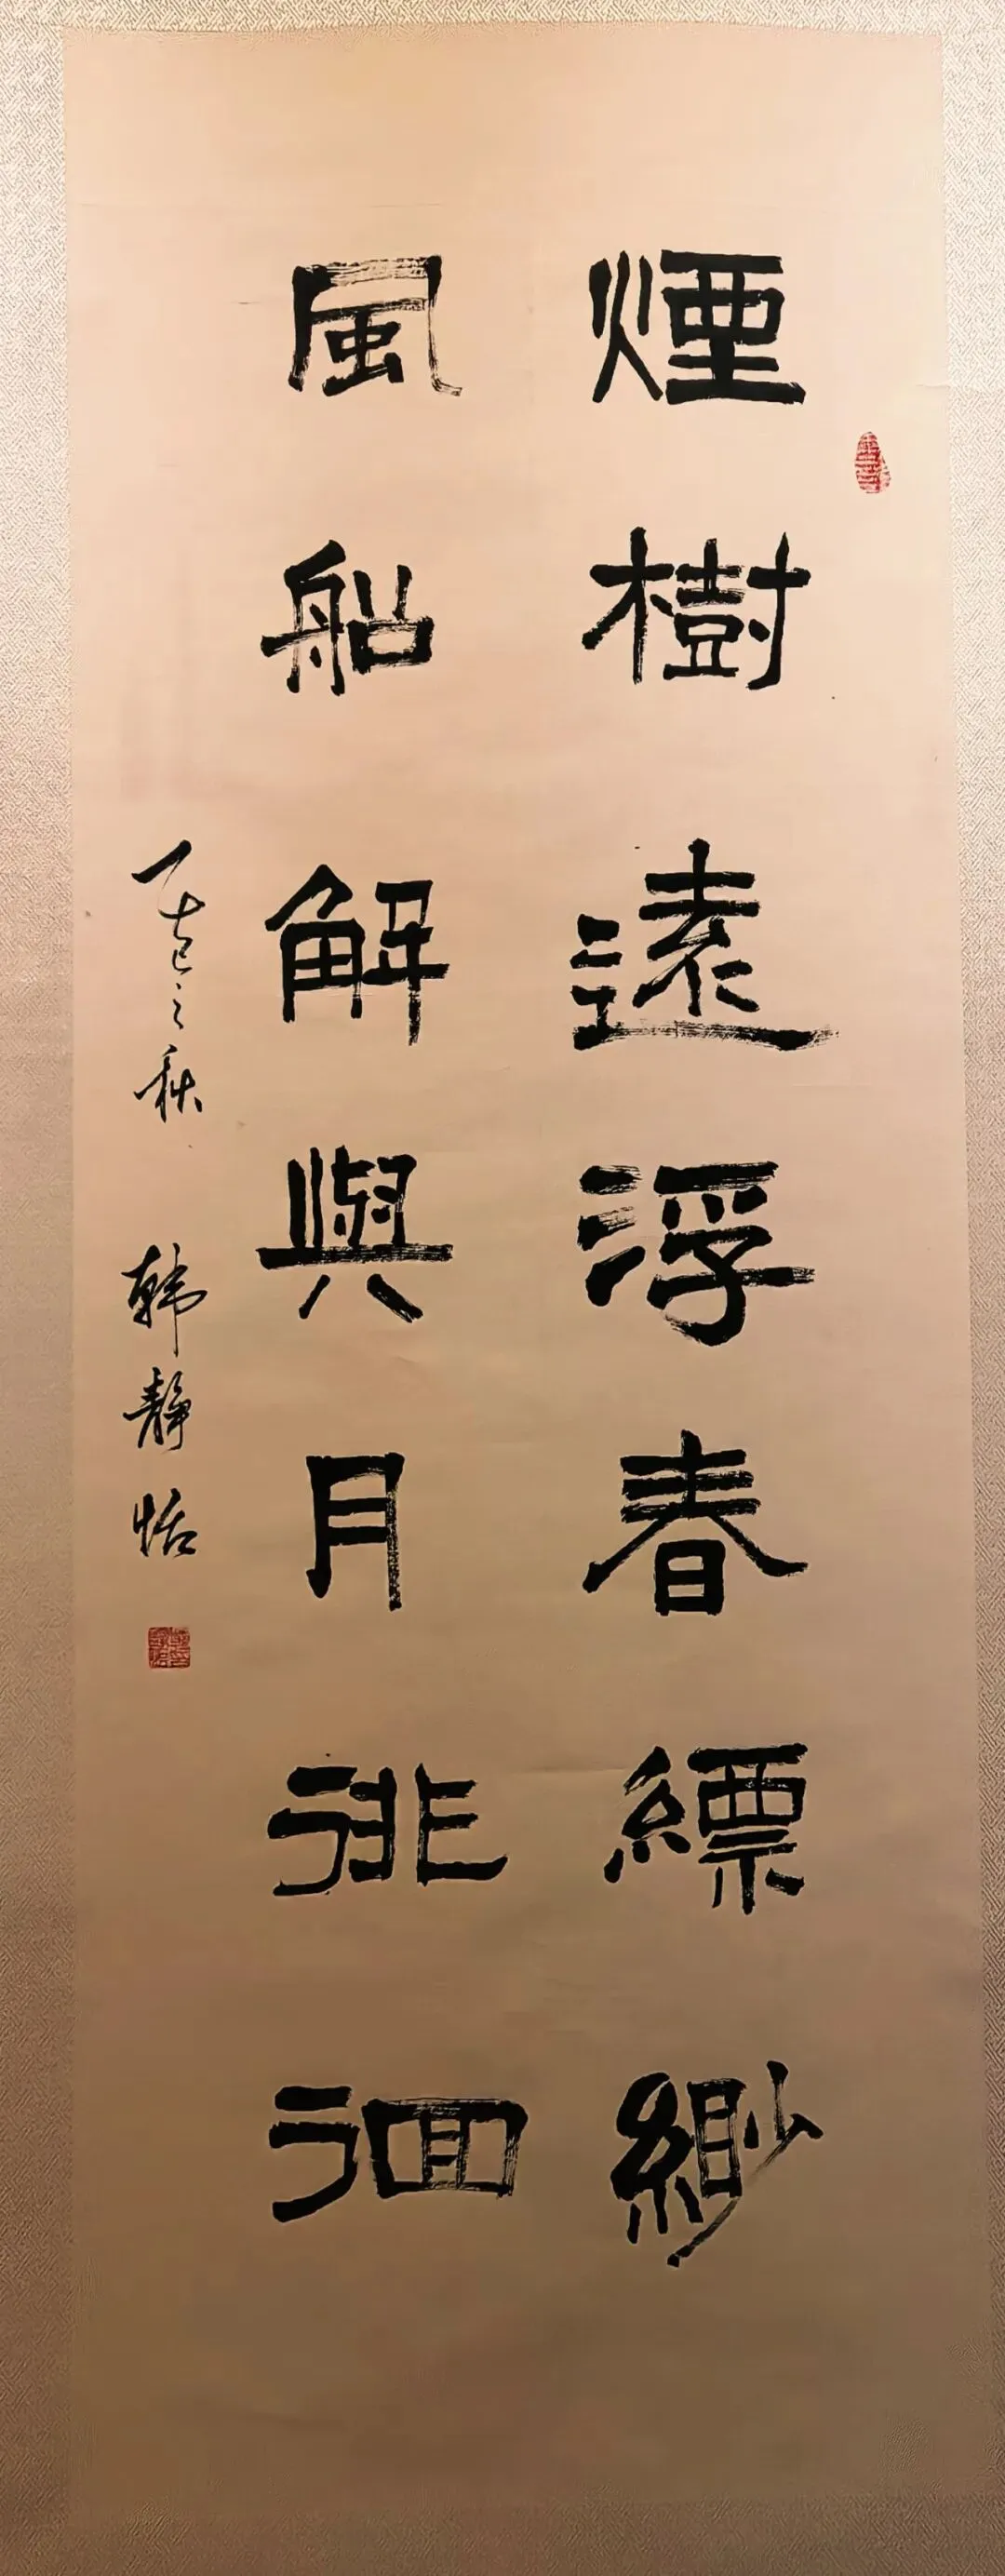 煙樹遠浮春縹緲
風船解與月徘徊
丁巳之秋 韩靜恬